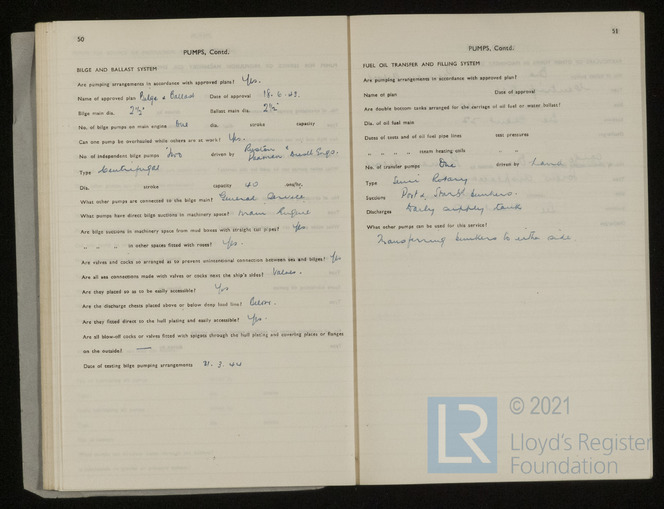 50
PUMPS, Contd.
BILGE AND BALLAST SYSTEM
Are pumping arrangements in accordance with approved plans? Yes.
Name of approved plan Bilge & Ballast Date of approval 18.6.43.
Bilge main dia. 2½" Ballast main dia. 2½"
No. of bilge pumps on main engine One dia. stroke capacity
Can one pump be overhauled while others are at work? Yes.
No. of independent bilge pumps Two driven by Ruston &
Type Centrifugal
Dia. stroke capacity 40 tons/hr.
What other pumps are connected to the bilge main? General Service
What pumps have direct bilge suctions in machinery space? Main Engine
Are bilge suctions in machinery space from mud boxes with straight tail pipes? Yes.
" " " in other spaces fitted with roses? Yes.
Are valves and cocks so arranged as to prevent unintentional connection between sea and bilges? Yes
Are all sea connections made with valves or cocks next the ship's sides? Valves.
Are they placed so as to be easily accessible? Yes
Are the discharge chests placed above or below deep load line? Below.
Are they fitted direct to the hull plating and easily accessible? Yes.
Are all blow-off cocks or valves fitted with spigots through the hull plating and covering plates or flanges
on the outside? —
Date of testing bilge pumping arrangements 21.2.44
51
PUMPS, Contd.
FUEL OIL TRANSFER AND FILLING SYSTEM
Are pumping arrangements in accordance with approved plan?
Name of plan Date of approval
Are double bottom tanks arranged for the carriage of oil fuel or water ballast?
Dia. of oil fuel main
Dates of tests and of oil fuel pipe lines test pressures
" " " " steam heating coils " "
No. of transfer pumps One driven by Hand
Type Semi Rotary
Suctions Port & Starbd bunkers.
Discharges Daily supply tank
What other pumps can be used for this service?
Transferring bunkers to either side.
LR
© 2021
Lloyd's Register
Foundation